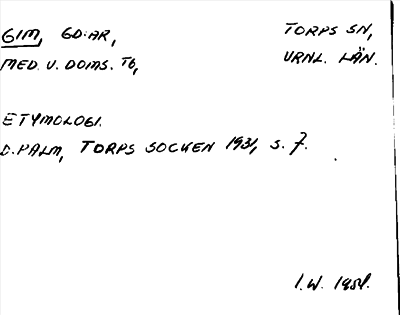 GIM, GD:AR, TORPS SN,
MED. V. DOMS. TG, VRNL. LÄN.
ETYMOLOGI.
D. PALM, TORPS SOCKEN 1931, S. 7.
I.W. 1951.